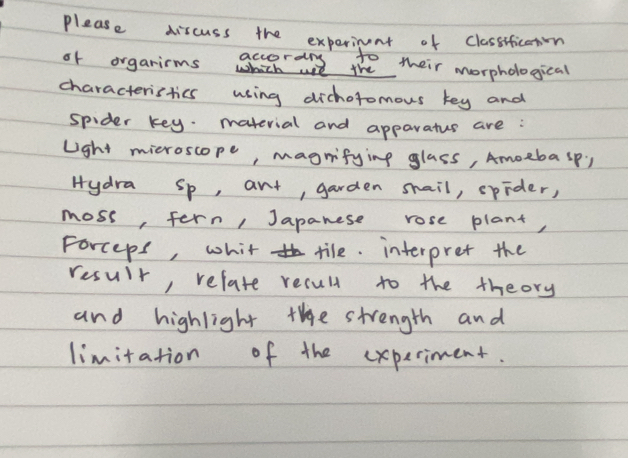 please discuss the experiment of Classification
of organisms according to their morphological
characteristics using dichotomous key and
spider key. material and apparatus are :
Light microscope, magnifying glass, Amoeba sp.,
Hydra sp, ant, garden snail, spider,
moss, fern, Japanese rose plant,
Forceps, whit tile. interpret the
result, relate result to the theory
and highlight the strength and
limitation of the experiment.